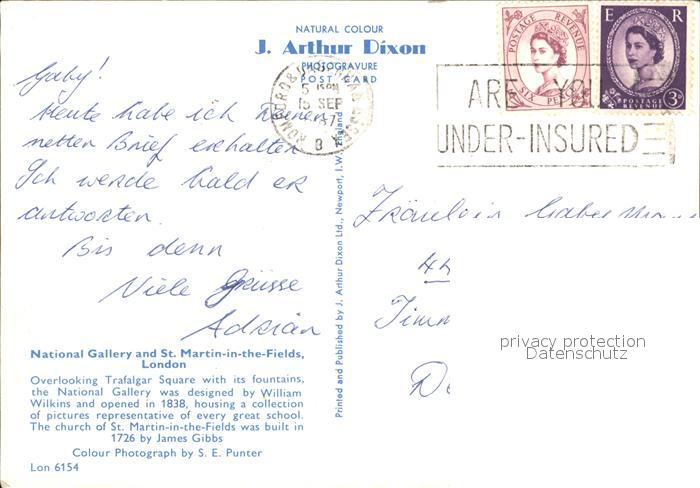 NATURAL COLOUR
J. Arthur Dixon
PHOTOGRAVURE
POST CARD
POSTAGE REVENUE
SIX PENCE
E R
POSTAGE REVENUE
3D
ARE YOU
UNDER-INSURED
15 SEP
Gaby!
Heute habe ich Deinen
netten Brief erhalten
Ich werde bald es
antworten.
Bis denn
Viele Grüsse
Adrian
Printed and Published by J. Arthur Dixon Ltd., Newport, I.W., England
Fräulein
44
Timm
De
privacy protection
Datenschutz
National Gallery and St. Martin-in-the-Fields,
London
Overlooking Trafalgar Square with its fountains,
the National Gallery was designed by William
Wilkins and opened in 1838, housing a collection
of pictures representative of every great school.
The church of St. Martin-in-the-Fields was built in
1726 by James Gibbs
Colour Photograph by S. E. Punter
Lon 6154